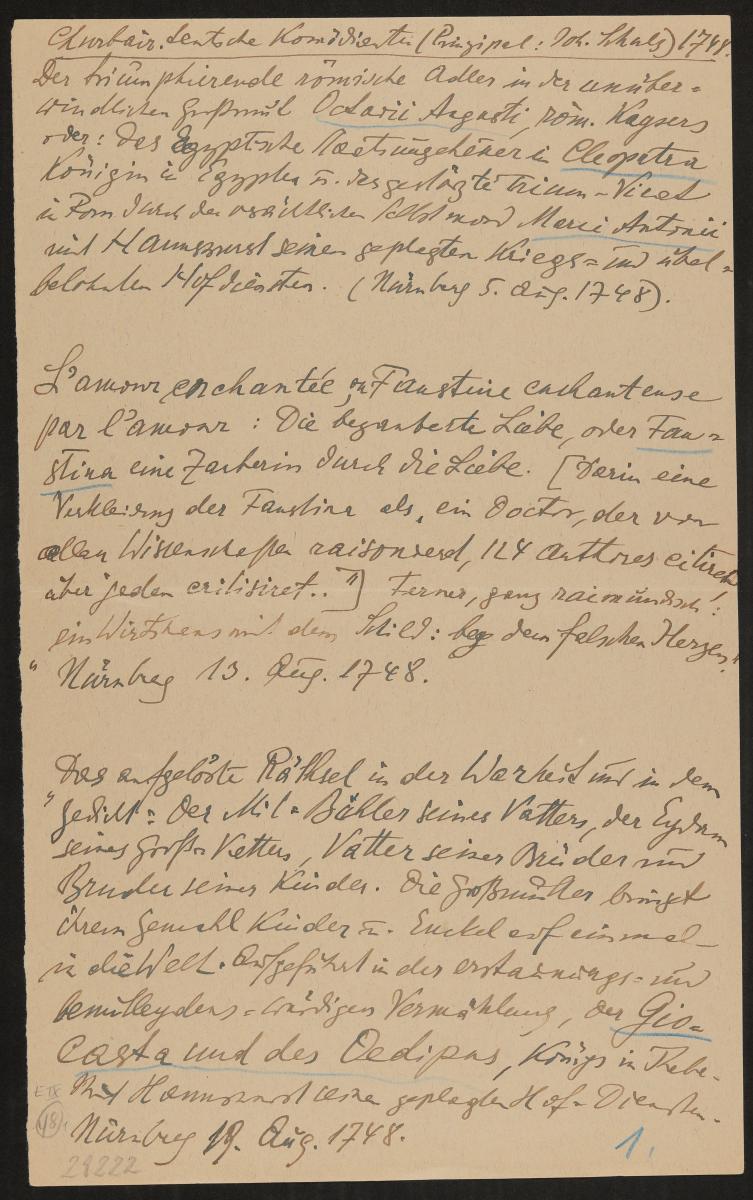 Churbair. teutsche Komödianten (Prinzipal: Joh. Schulz) 1748.
Der triumphierende römische Adler in der unüber=
windlichen Großmut Octavii Augusti, röm. Kaysers
oder: Das Egyptische Staatsungeheuer in Cleopatra
Königin in Egypten u. das gestürzte Trium-Virat
in Rom durch den verächtlichen Selbstmord Marci Antonii
mit Hannswurst seinen geplagten Kriegs= und übel=
belohnten Hofdiensten. (Nürnberg 5. Aug. 1748).
L'amour enchantée ou Faustine enchanteuse
par l'amour: Die bezauberte Liebe, oder Fau=
stina eine Zauberin durch die Liebe. [Darin eine
Verkleidung der Faustina als „ein Doctor, der von
allen Wissenschaften raisonierd, 124 Authores citiret
über jeden critisiret.."] Ferner, ganz raimundisch!:
ein Wirtshaus mit dem Schild: bey dem falschen Herzen."
" Nürnberg 13. Aug. 1748.
Das aufgelöste Räthsel in der Warheit und in dem
" Gedicht: Der Mit-Buhler seines Vatters, der Eydam
seines Groß-Vetters, Vatter seiner Brüder und
Bruder seiner Kinder. Die Großmutter bringt
ihrem Gemahl Kinder u. Enckel auf einmal
in die Welt. Aufgeführt in der erstaunungs= und
bemittleydens=würdigen Vermählung, der Gio=
casta und des Oedipus, Königs in Thebe.
Mit Hannswurst seinen geplagten Hof-Diensten.
Nürnberg 19. Aug. 1748.
48.
28222
1.